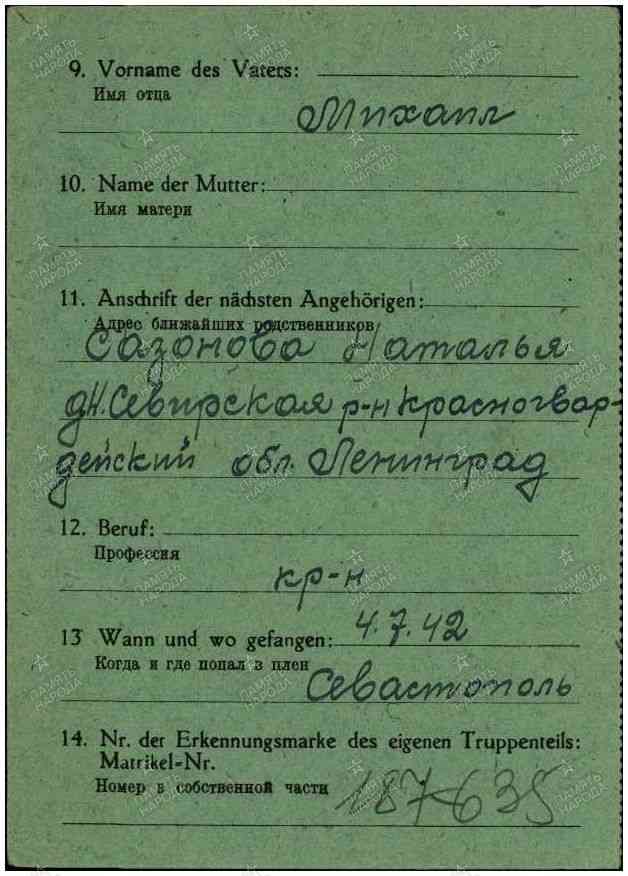 9. Vorname des Vaters:
Имя отца
Михаил
10. Name der Mutter:
Имя матери
11. Anschrift der nächsten Angehörigen:
Адрес ближайших родственников
Сазонова Наталья
дН.Севирская р-н Красногвар-
дейский обл. Ленинград
12. Beruf:
Профессия
кр-н
13 Wann und wo gefangen: 4.7.42
Когда и где попал в плен
Севастополь
14. Nr. der Erkennungsmarke des eigenen Truppenteils:
Matrikel-Nr.
Номер в собственной части 187635
ПАМЯТЬ НАРОДА